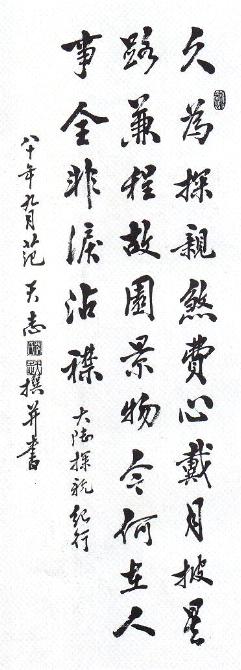 久為探親煞費心戴月披星
路兼程故園景物今何在人
事全非淚沾襟 大陸探親紀行
八十年九月 范天志撰并書